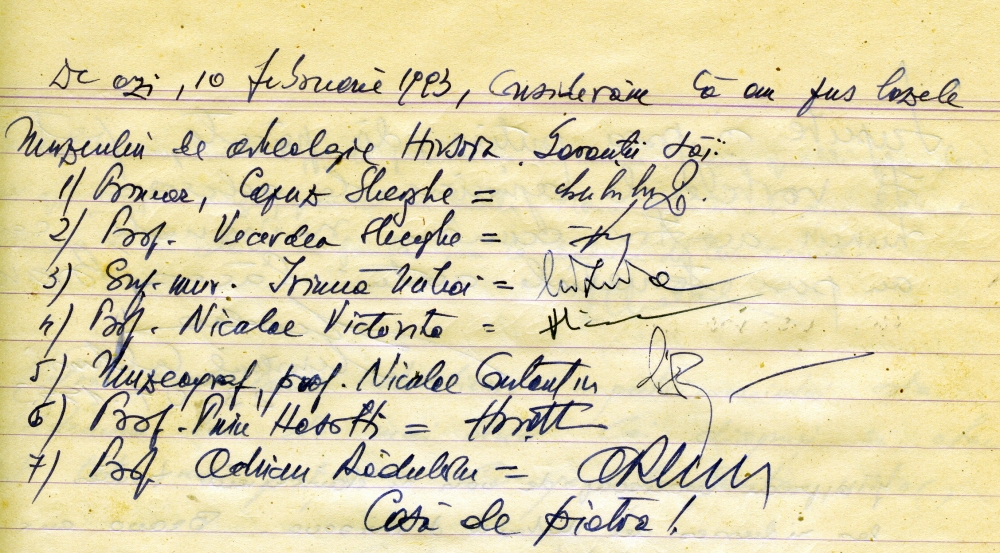 De azi, 10 februarie 1993, considerăm că am pus bazele
Muzeului de arheologie Hîrsova. Savanții săi:
1) Primar, Gheorghe =
2) Prof. Vecerdea Gheorghe =
3) Irimia Mihai =
4) Prof. Nicolae Victorița =
5) Muzeograf, prof. Nicolae Constantin
6) Prof. Puiu Hașotti =
7) Prof. Adrian Rădulescu =
Casă de piatră!